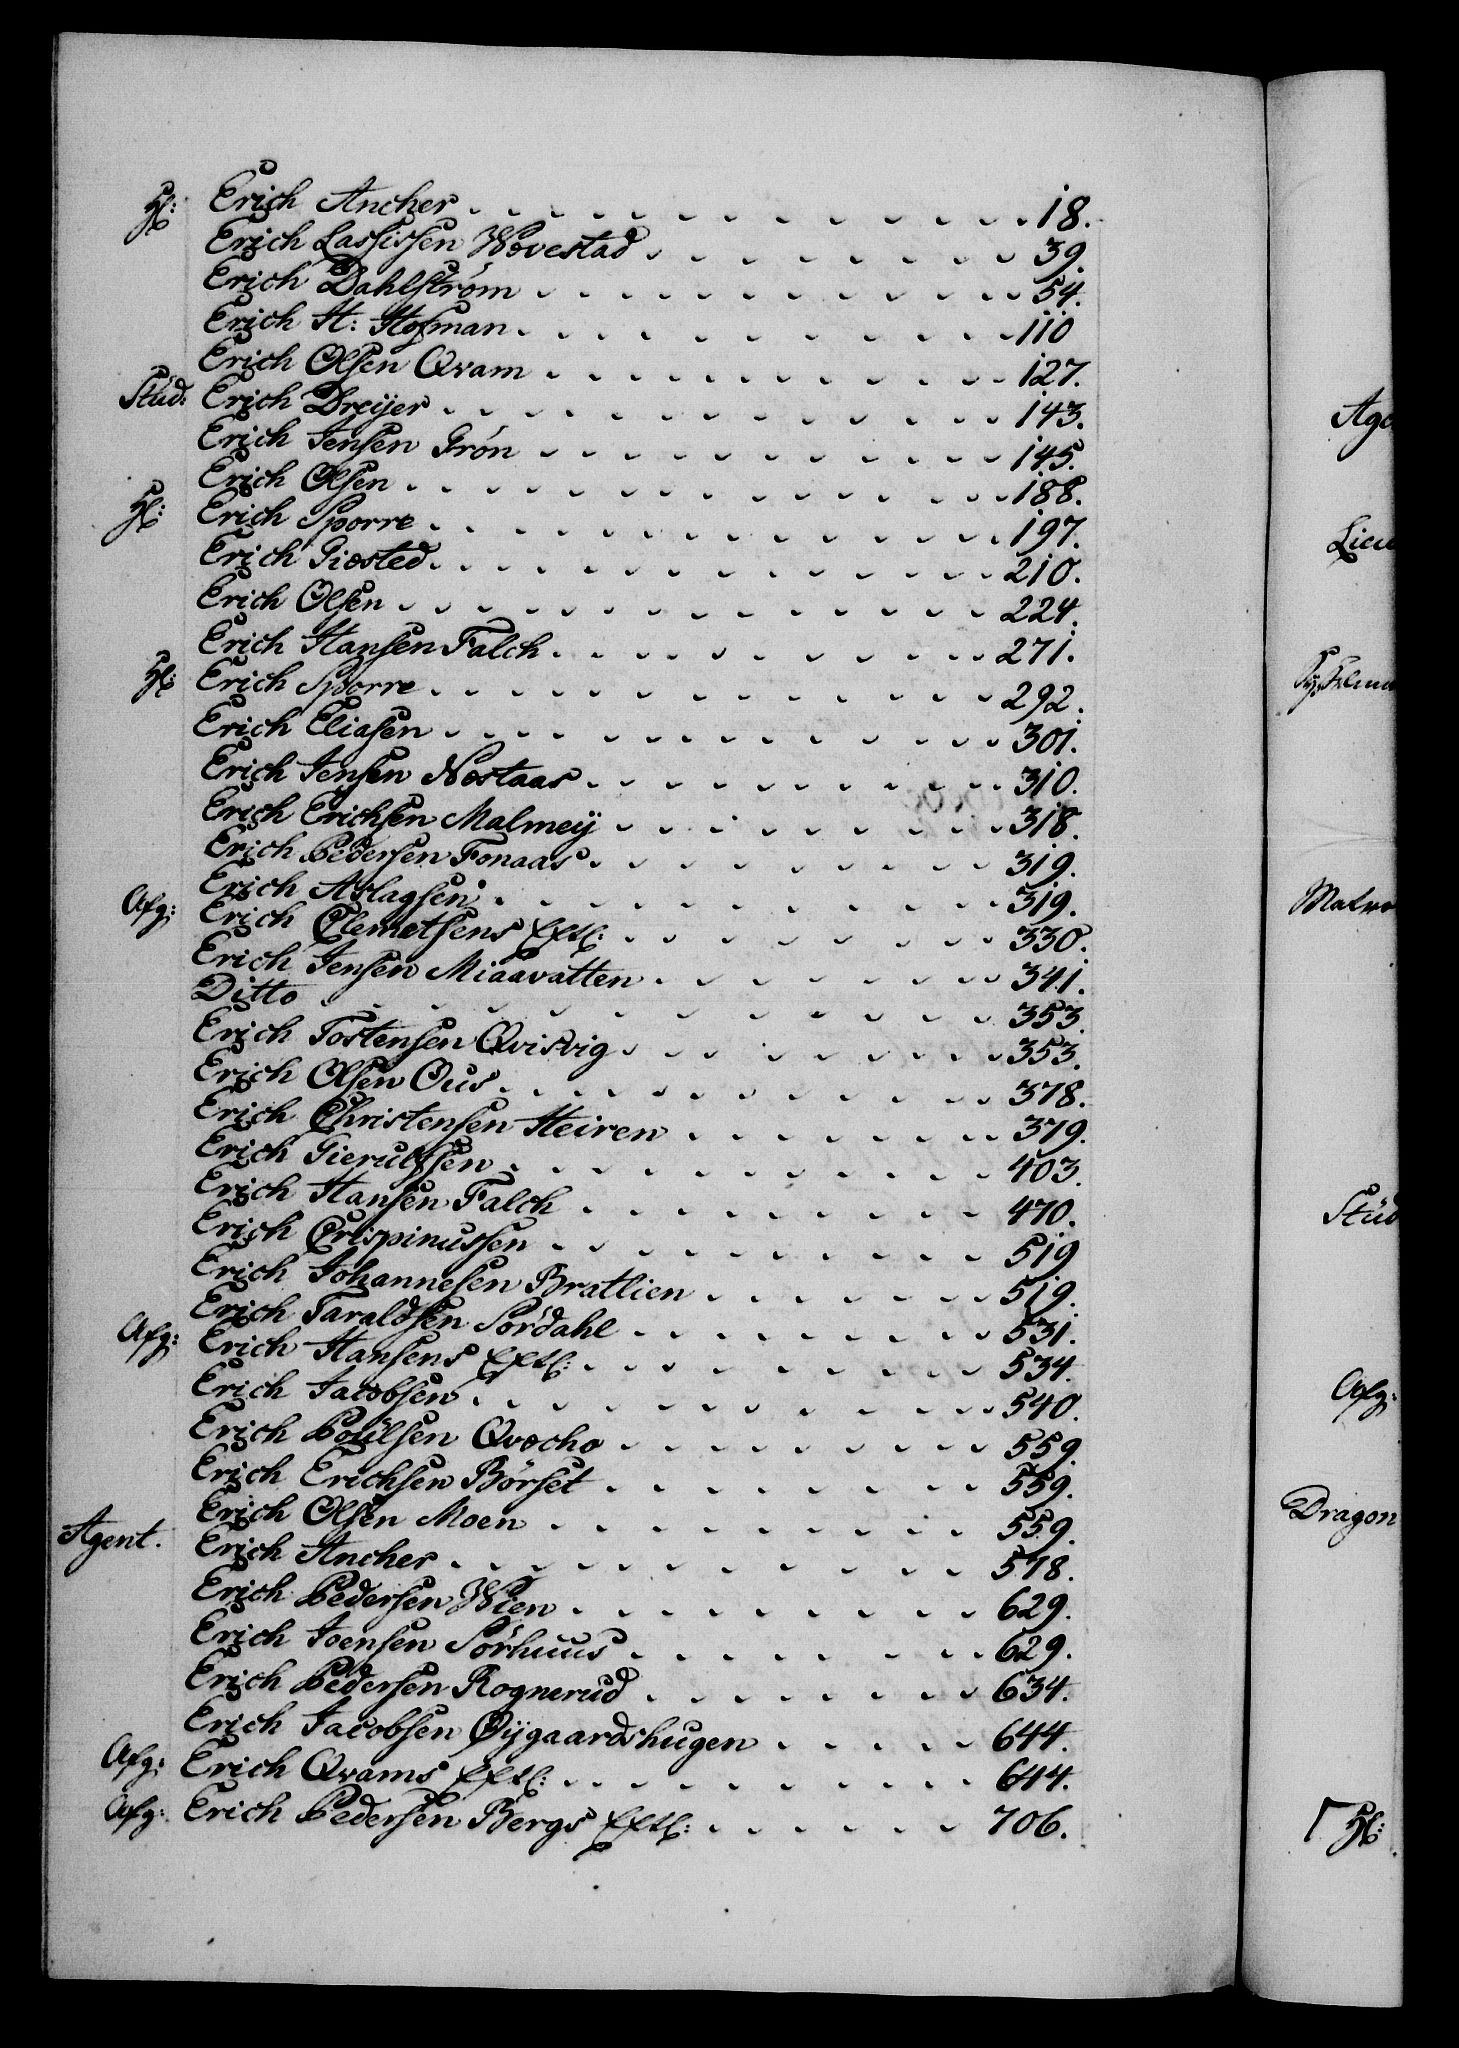 H: Erich Ancher 18.
Erich Lassissen Wovestad 39.
Erich Dahlström 54.
Erich H: Hofman 110
Erich Olsen Qvam 127.
Stüd: Erich Dreyer 143.
Erich Jensen Grön 145.
Erich Olsen 188.
H: Erich Sporre 197.
Erich Giøsted 210.
Erich Olsen 224.
Erich Hansen Falch 271.
H: Erich Sporre 292.
Erich Eliasen 301.
Erich Jensen Næstaas 310.
Erich Erichsen Malmeÿ 318.
Erich Pedersen Fonaas 319.
Erich Aslagsen 319.
Afg: Erich Clemetsens Eftl: 330.
Erich Jensen Miaavatten 341.
Ditto 353.
Erich Tostensen Qvisvig 353.
Erich Olsen Ous 378.
Erich Christensen Heiren 379.
Erich Gierulfsen 403.
Erich Hansen Falch 470.
Erich Crispinussen 519
Erich Johannesen Bratlien 519.
Erich Taraldsen Sördahl 531.
Afg: Erich Hansens Eftl: 534.
Erich Jacobsen 540.
Erich Poülsen Qvæcho 559.
Erich Erichsen Börset 559.
Erich Olsen Moen 559.
Agent. Erich Ancher 578.
Erich Pedersen Wien 629.
Erich Joensen Sörhuus 629.
Erich Pedersen Rognerud 634.
Erich Jacobsen Øÿgaardshugen 644.
Afg: Erich Qvams Eftl: 644.
Afg: Erich Pedersen Bergs Eftl: 706.
Stüd
Afg:
Dragon
H: